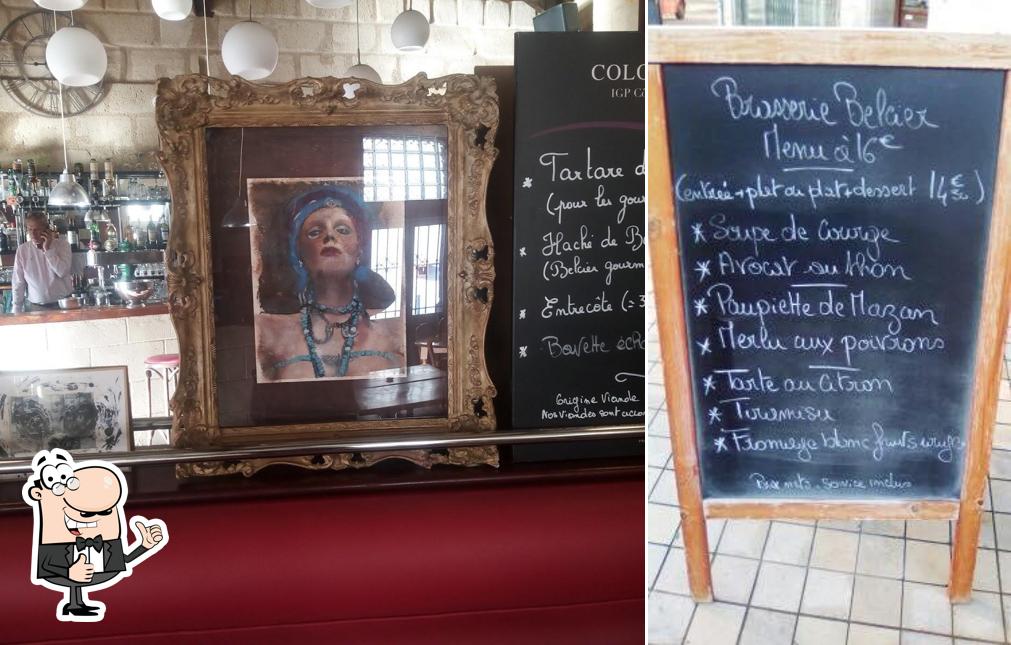 COLO
IGP Co
* Tartare d
(pour les gour
* Haché de Bo
(Belcier gourm
* Entrecôte (≈ 3
* Bavette écha
Origine Viande
Nos Viandes sont accom
Brasserie Belcier
Menu à 16€
(entrée + plat ou plat + dessert 14€50)
* Soupe de Courge
* Avocat au thon
* Paupiette de Mazan
* Merlu aux poivrons
* Tarte au Citron
* Tiramisu
* Fromage blanc fruits rouges
Prix nets. Service inclus